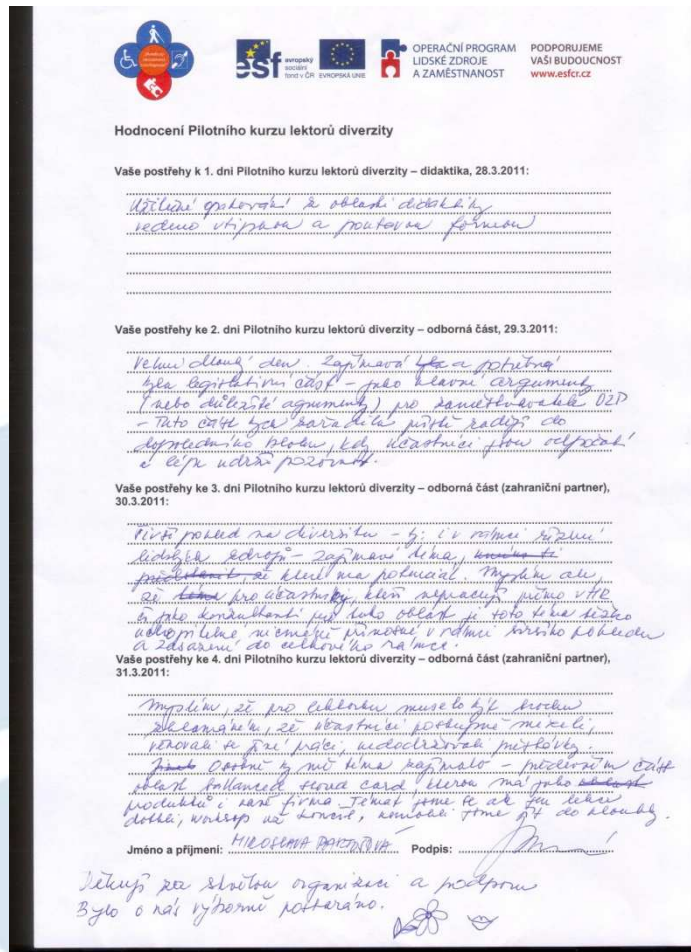 esf evropský sociální fond v ČR EVROPSKÁ UNIE
OPERAČNÍ PROGRAM LIDSKÉ ZDROJE A ZAMĚSTNANOST
PODPORUJEME VAŠI BUDOUCNOST www.esfcr.cz
Hodnocení Pilotního kurzu lektorů diverzity
Vaše postřehy k 1. dni Pilotního kurzu lektorů diverzity – didaktika, 28.3.2011:
Užitečné opakování z oblasti didaktiky
vedeno vtipnou a poutavou formou
Vaše postřehy ke 2. dni Pilotního kurzu lektorů diverzity – odborná část, 29.3.2011:
Velmi dlouhý den. Zajímavá byla a potřebná
byla legislativní část – jako hlavní argumenty
(nebo důležité agrumenty) pro zaměstnavatele OZP
– Tuto část bych zařadila příště raději do
dopoledního bloku, kdy účastníci jsou odpočatí
a lépe udrží pozornost.
Vaše postřehy ke 3. dni Pilotního kurzu lektorů diverzity – odborná část (zahraniční partner),
30.3.2011:
Širší pohled na diverzitu – tj. i v rámci řízení
lidských zdrojů – zajímavé téma,
které má potenciál. Myslím ale,
že pro účastníky, kteří nepracují přímo v HR
či jako konzultanti pro tuto oblast je toto téma těžko
uchopitelné, nicméně přínosné v rámci širšího pohledu
a zasazení do celkového rámce.
Vaše postřehy ke 4. dni Pilotního kurzu lektorů diverzity – odborná část (zahraniční partner),
31.3.2011:
Myslím, že pro lektorku muselo být trochu
zklamáním, že účastníci postupně mizeli,
věnovali se jiné práci, nedodržovali přestávky.
Osobně by mě téma zajímalo – především část
oblast ballanced scord card, kterou má jako
produktů i naše firma. Témat jsme se ale jen lehce
dotkli, workshop na konci, nemohli jsme jít do hloubky.
Jméno a příjmení: MIROSLAVA Podpis:
Děkuji za skvělou organizaci a podporu
Bylo o nás výborně postaráno.